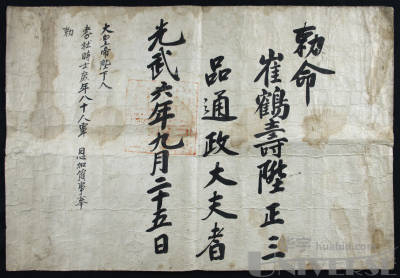 勅命
崔鶴壽陞正三
品通政大夫者
光武六年九月二十五日
大皇帝陛下入
耆社時士庶年八十八覃 恩加資事奉
勅
huabid.com
UNIVERSE